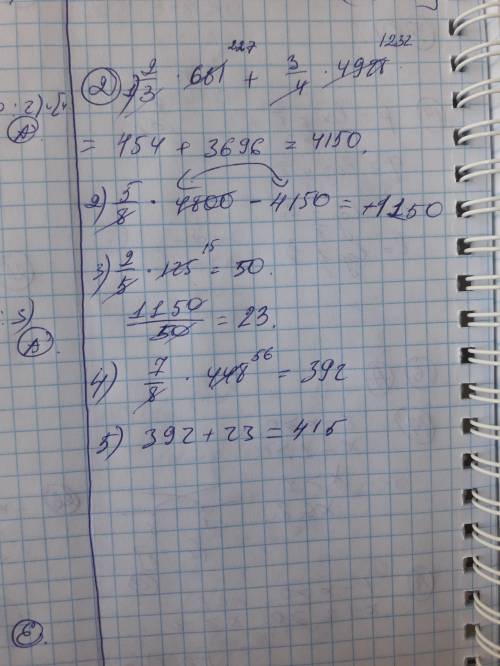 227 1232
② 1) 2/3 · 681 + 3/4 · 4928
= 454 + 3696 = 4150.
2) 5/8 · 4800 - 4150 = +1150
3) 2/5 · 125 15 = 50.
1150/50 = 23.
4) 7/8 · 448 56 = 392
5) 392 + 23 = 415
: 2)
A
: 5)
A
6